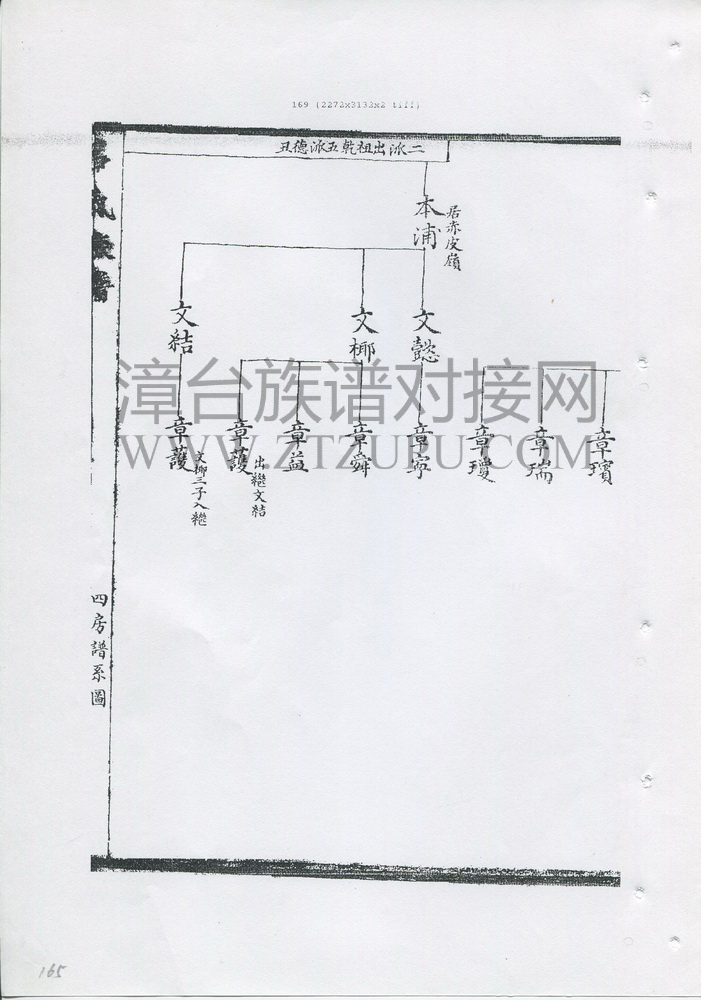 169 (2272x3132x2 tiff)
二派出祖乾五派德丑
本浦
居赤皮嶺
文懿
文椰
文結
章璸
章瑞
章瓊
章寧
章舜
章益
章護
出繼文結
章護
文椰三子入繼
氏族譜
四房譜系圖
漳台族谱对接网
WWW.ZTZUPU.COM
165